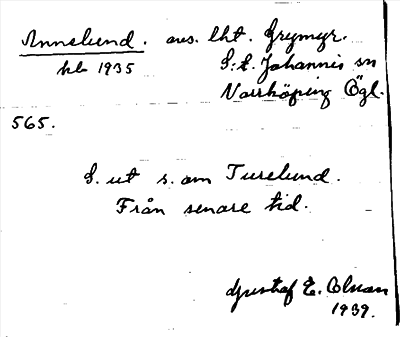 Annelund. avs. lht. Grymyr.
kb 1935 S:t Johannis sn
Norrköping Ögl.
565.
L. ut s. om Turelund.
Från senare tid.
Gustaf E.
1939.